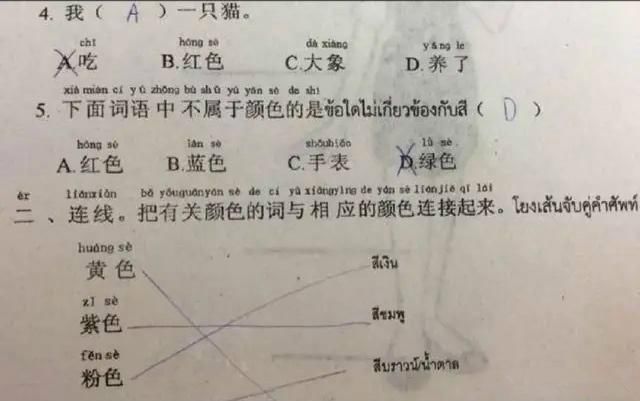 4. 我（ A ）一只猫。
chī hóng sè dà xiàng yǎng le
A.吃 B.红色 C.大象 D.养了
xià miàn cí yǔ zhōng bù shǔ yú yán sè de shì
5. 下面词语中不属于颜色的是ข้อใดไม่เกี่ยวข้องกับสี（ D ）
hóng sè lán sè shǒubiǎo lǜ sè
A.红色 B.蓝色 C.手表 D.绿色
èr liánxiàn bǎ yǒuguānyán sè de cí yǔ xiāngyìng de yán sè liánjiē qǐ lái
二、连线。把有关颜色的词与相应的颜色连接起来。โยงเส้นจับคู่คำศัพท์
huáng sè
黄色 สีเงิน
zǐ sè
紫色 สีชมพู
fěn sè
粉色 สีบราวน์/น้ำตาล